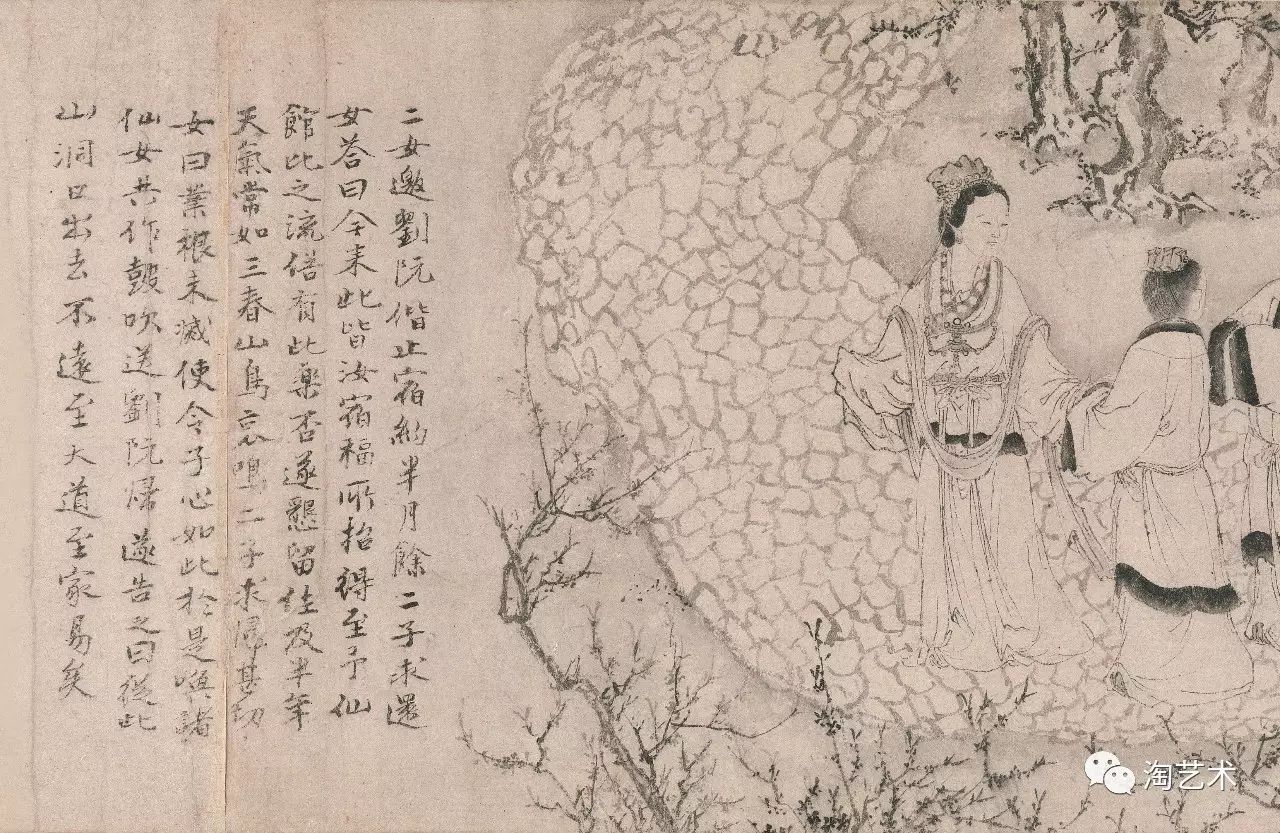 二女邀劉阮偕止宿約半月餘二子求還
女答曰今来此皆汝宿福所招得至予仙
館比之流俗有此樂否遂懇留住及半年
天氣常如三春山鳥哀鳴二子求歸甚切
女曰業根未滅使令子心如此於是喚諸
仙女共作鼓吹送劉阮歸遂告之曰從此
山洞口出去不遠至大道至家易矣
淘艺术